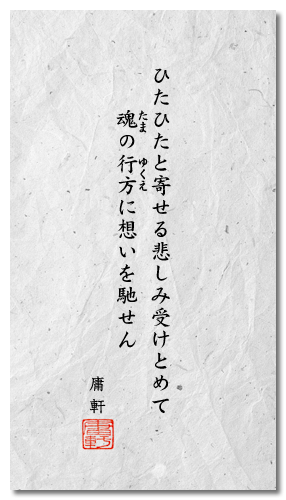 ひたひたと寄せる悲しみ受けとめて
魂の行方に想いを馳せん
たま
ゆくえ
庸軒
庸軒